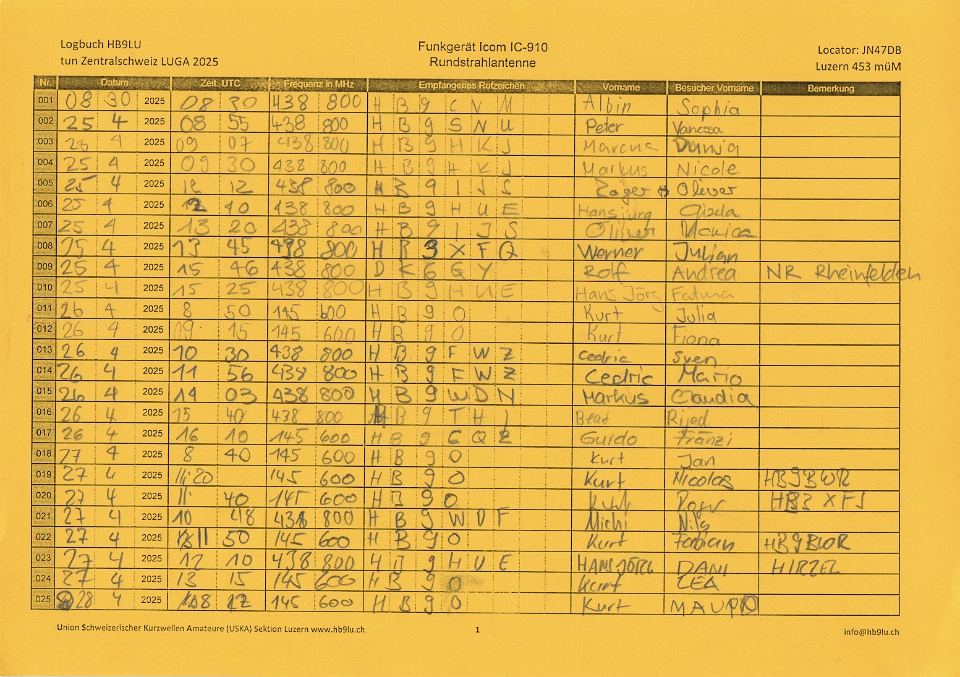 Logbuch HB9LU
tun Zentralschweiz LUGA 2025
Funkgerät Icom IC-910
Rundstrahlantenne
Locator: JN47DB
Luzern 453 müM
Nr. Datum Zeit UTC Frequenz in MHz Empfangenes Rufzeichen Vorname Besucher Vorname Bemerkung
001 08 30 2025 08 30 438 800 H B 9 C V M Albin Sophia
002 25 4 2025 08 55 438 800 H B 9 S N U Peter Vanessa
003 25 4 2025 09 07 438 800 H B 9 H K J
004 25 4 2025 09 30 438 800 H B 9 H K J Markus Nicole
005 25 4 2025 12 12 438 800 H B 9 I J S Oliver
006 25 4 2025 12 40 438 800 H B 9 H U E Hansjürg Gisela
007 25 4 2025 13 20 438 800 H B 9 I J S Monica
008 25 4 2025 13 45 438 800 H B 3 X F Q Werner Julian
009 25 4 2025 15 46 438 800 D K 6 G Y Rolf Andrea NR Rheinfelden
010 25 4 2025 15 25 438 800 H B 9 H U E Hans Jörg Fatma
011 26 4 2025 8 50 145 600 H B 9 O Kurt Julia
012 26 4 2025 09 15 145 600 H B 9 O Kurt Fiona
013 26 4 2025 10 30 438 800 H B 9 F W Z Cedric Sven
014 26 4 2025 11 56 438 800 H B 9 F W Z Cedric Mario
015 26 4 2025 14 03 438 800 H B 9 W D N Markus Claudia
016 26 4 2025 15 40 438 800 H B 9 T H J Beat Rijad
017 26 4 2025 16 10 145 600 H B 9 G Q Z Guido Fränzi
018 27 4 2025 8 40 145 600 H B 9 O Kurt Jan
019 27 4 2025 11:20 145 600 H B 9 O Kurt Nicolas HB9BWR
020 27 4 2025 11 40 145 600 H B 9 O Kurt Roger HB3 XFJ
021 27 4 2025 10 48 438 800 H B 9 W D F Michi Nils
022 27 4 2025 11 50 145 600 H B 9 O Kurt Fabian HB9BWR
023 27 4 2025 12 10 438 800 H B 9 H U E HANSJÖRG DANI HIRZEL
024 27 4 2025 13 15 145 600 H B 9 O Kurt LEA
025 28 4 2025 08 12 145 600 H B 9 O Kurt MAURO
Union Schweizerischer Kurzwellen Amateure (USKA) Sektion Luzern www.hb9lu.ch
1
info@hb9lu.ch